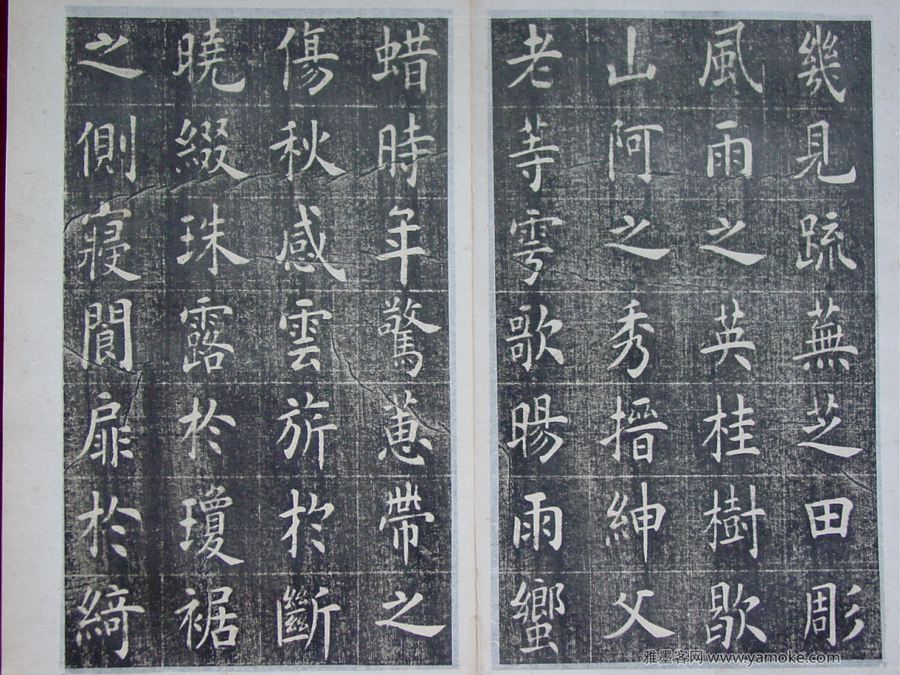 幾見疏蕪芝田彫
風雨之英桂樹歇
山阿之秀搢紳父
老荅雩歌暘雨蠁
蜡時年驚蕙帶之
傷秋感雲旂於斷
曉綴珠露於瓊裾
之側寢閬扉於綺
雅墨客网 www.yamoke.com